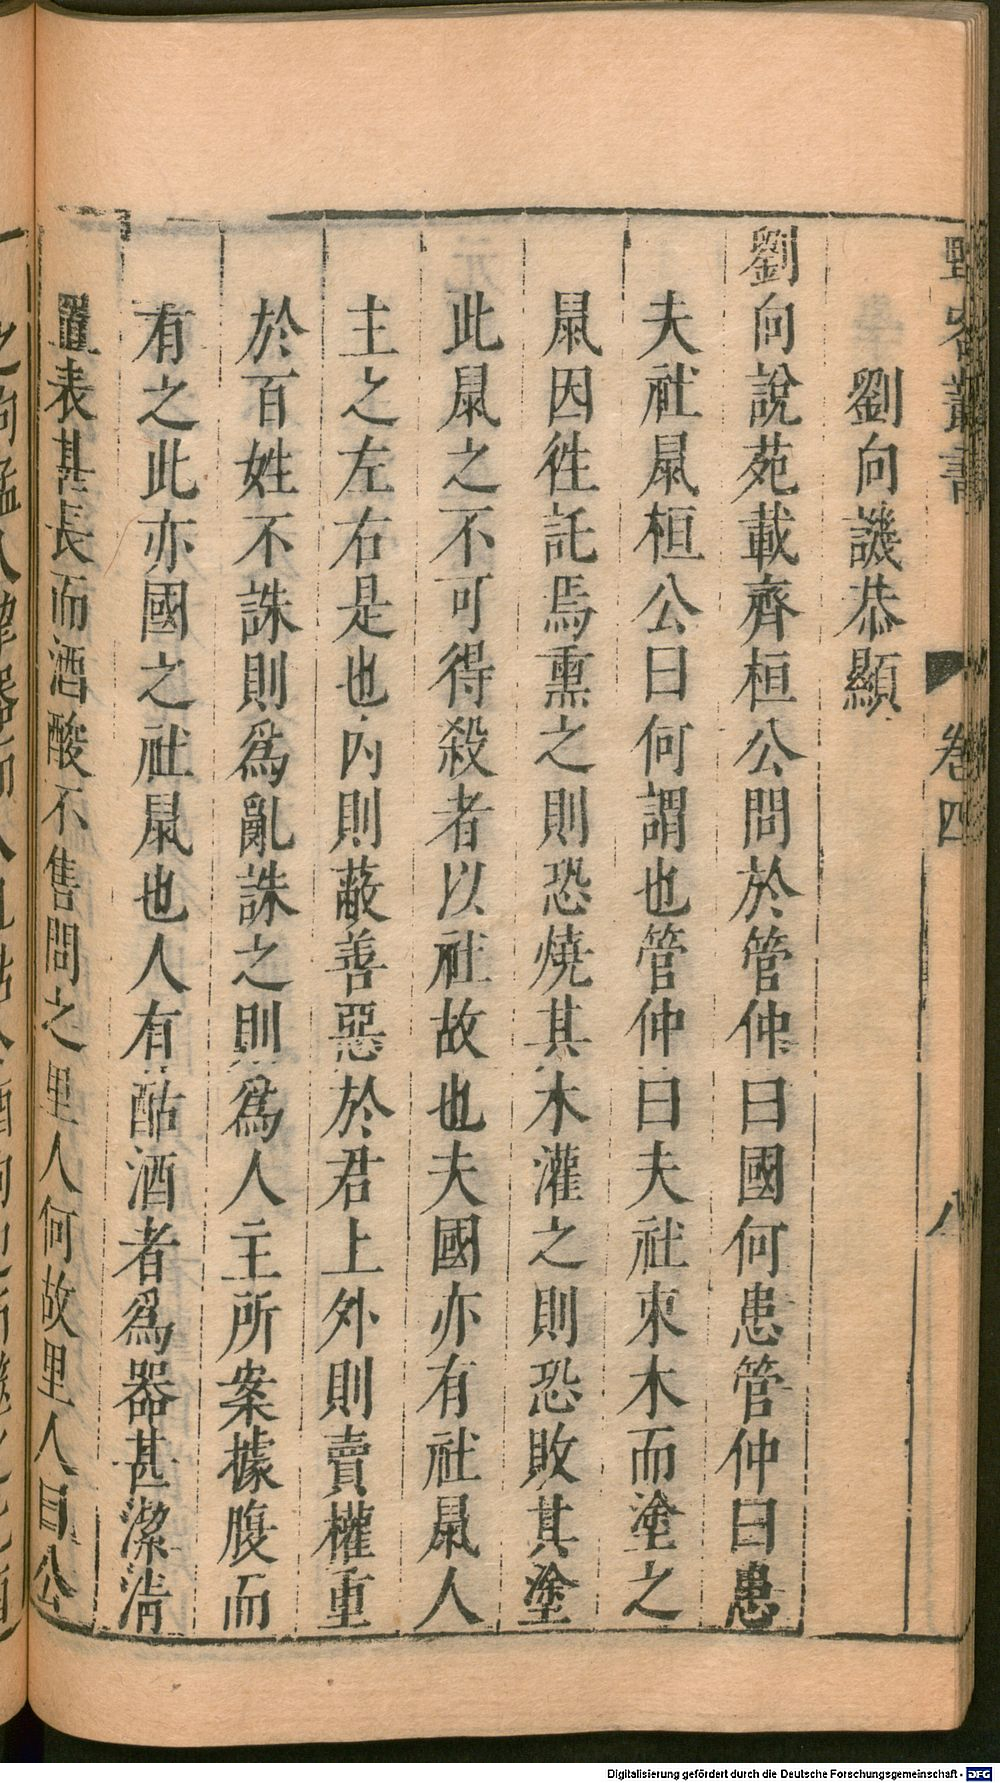 野客叢書
卷四
八
劉向譏恭顯
劉向說苑載齊桓公問於管仲曰國何患管仲曰患
夫社鼠桓公曰何謂也管仲曰夫社束木而塗之
鼠因徃託焉熏之則恐燒其木灌之則恐敗其塗
此鼠之不可得殺者以社故也夫國亦有社鼠人
主之左右是也內則蔽善惡於君上外則賣權重
於百姓不誅則爲亂誅之則爲人主所案據腹而
有之此亦國之社鼠也人有酤酒者爲器甚潔淸
置表甚長而酒酸不售問之里人何故里人曰公
Digitalisierung gefördert durch die Deutsche Forschungsgemeinschaft - DFG